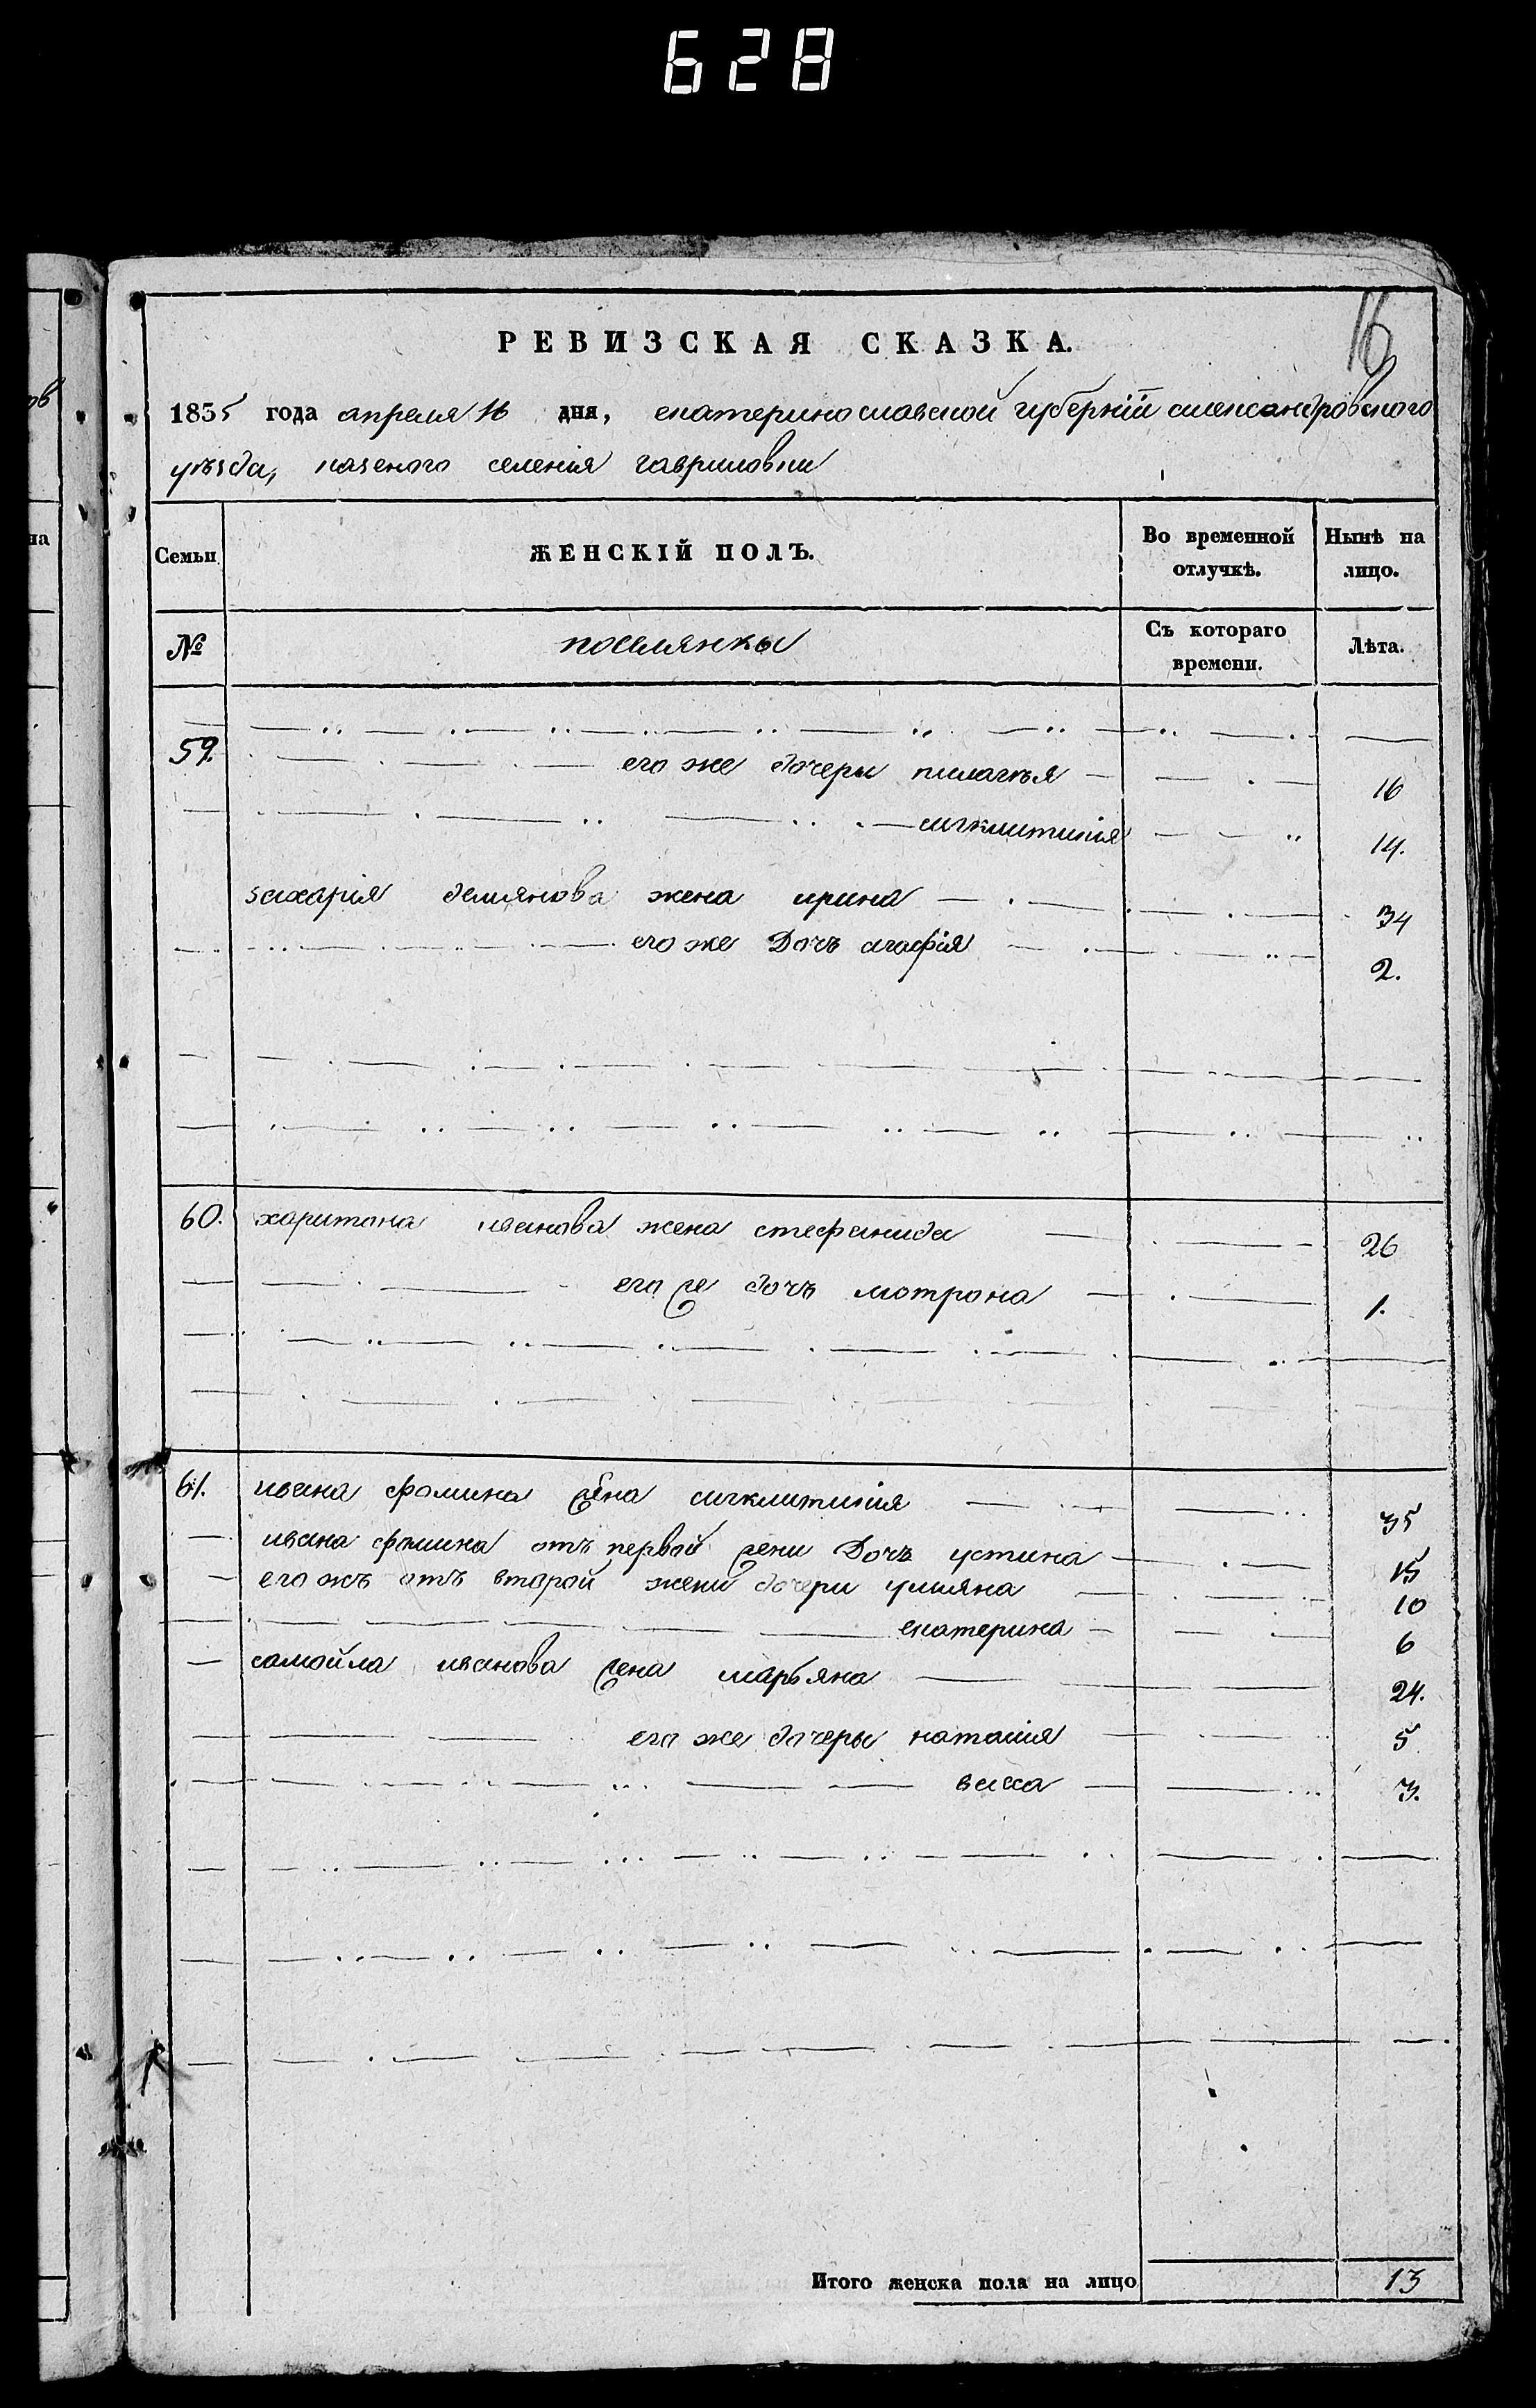 628
16
РЕВИЗСКАЯ СКАЗКА.
1835 года апреля 16 дня, екатеринославской губернїй александровского
уѣзда, казеного селенія гавриловки
Семьи ЖЕНСКІЙ ПОЛЪ. Во временной отлучкѣ. Нынѣ на лицо.
№ поселянкы Съ котораго времени. Лѣта.
59. его же дочеры пилагѣя 16
сигклитикія 14.
захарія демянова жена ирина 34
его же Дочъ агафія 2.
60. харитона иванова жена стефанида 26
его же дочъ мотрона 1.
61. ивана фомина жена сигклитикія 35
ивана фомина отъ первой жени Дочъ устина 15
его жъ отъ второй жени дочери улияна 10
екатерина 6
самойла иванова жена марьяна 24.
его же дочеры наталія 5
васса 3.
Итого женска пола на лицо 13